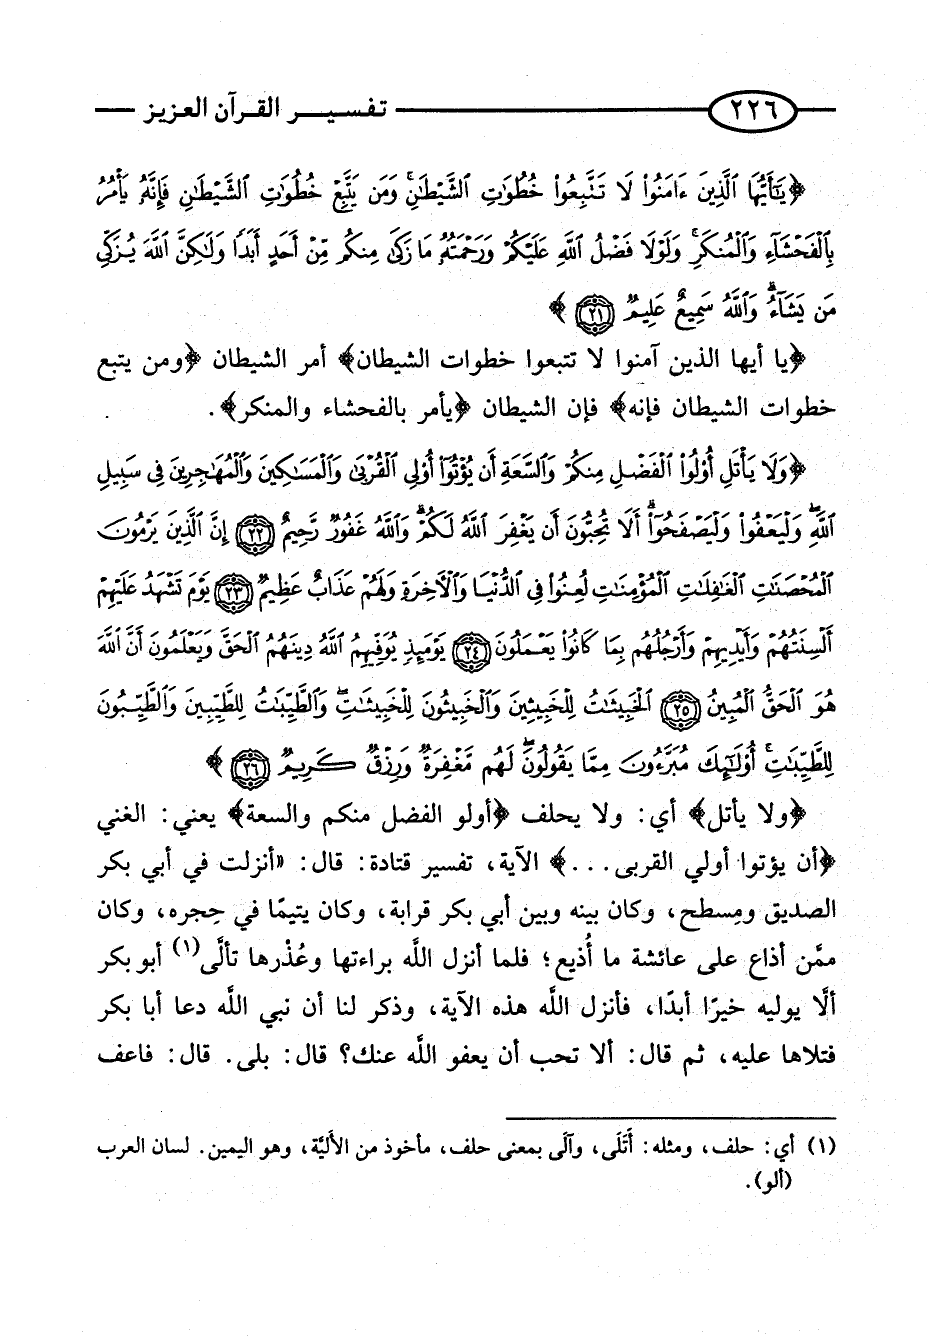 ٢٢٦ تفسير القرآن العزيز
﴿يَٰٓأَيُّهَا ٱلَّذِينَ ءَامَنُوا۟ لَا تَتَّبِعُوا۟ خُطُوَٰتِ ٱلشَّيْطَٰنِ ۚ وَمَن يَتَّبِعْ خُطُوَٰتِ ٱلشَّيْطَٰنِ فَإِنَّهُۥ يَأْمُرُ
بِٱلْفَحْشَآءِ وَٱلْمُنكَرِ ۚ وَلَوْلَا فَضْلُ ٱللَّهِ عَلَيْكُمْ وَرَحْمَتُهُۥ مَا زَكَىٰ مِنكُم مِّنْ أَحَدٍ أَبَدًا وَلَٰكِنَّ ٱللَّهَ يُزَكِّى
مَن يَشَآءُ ۗ وَٱللَّهُ سَمِيعٌ عَلِيمٌ ٢١﴾
﴿يا أيها الذين آمنوا لا تتبعوا خطوات الشيطان﴾ أمر الشيطان ﴿ومن يتبع
خطوات الشيطان فإنه﴾ فإن الشيطان ﴿يأمر بالفحشاء والمنكر﴾.
﴿وَلَا يَأْتَلِ أُو۟لُوا۟ ٱلْفَضْلِ مِنكُمْ وَٱلسَّعَةِ أَن يُؤْتُوٓا۟ أُو۟لِى ٱلْقُرْبَىٰ وَٱلْمَسَٰكِينَ وَٱلْمُهَٰجِرِينَ فِى سَبِيلِ
ٱللَّهِ ۖ وَلْيَعْفُوا۟ وَلْيَصْفَحُوٓا۟ ۗ أَلَا تُحِبُّونَ أَن يَغْفِرَ ٱللَّهُ لَكُمْ ۗ وَٱللَّهُ غَفُورٌ رَّحِيمٌ ٢٢ إِنَّ ٱلَّذِينَ يَرْمُونَ
ٱلْمُحْصَنَٰتِ ٱلْغَٰفِلَٰتِ ٱلْمُؤْمِنَٰتِ لُعِنُوا۟ فِى ٱلدُّنْيَا وَٱلْءَاخِرَةِ وَلَهُمْ عَذَابٌ عَظِيمٌ ٢٣ يَوْمَ تَشْهَدُ عَلَيْهِمْ
أَلْسِنَتُهُمْ وَأَيْدِيهِمْ وَأَرْجُلُهُم بِمَا كَانُوا۟ يَعْمَلُونَ ٢٤ يَوْمَئِذٍ يُوَفِّيهِمُ ٱللَّهُ دِينَهُمُ ٱلْحَقَّ وَيَعْلَمُونَ أَنَّ ٱللَّهَ
هُوَ ٱلْحَقُّ ٱلْمُبِينُ ٢٥ ٱلْخَبِيثَٰتُ لِلْخَبِيثِينَ وَٱلْخَبِيثُونَ لِلْخَبِيثَٰتِ ۖ وَٱلطَّيِّبَٰتُ لِلطَّيِّبِينَ وَٱلطَّيِّبُونَ
لِلطَّيِّبَٰتِ ۚ أُو۟لَٰٓئِكَ مُبَرَّءُونَ مِمَّا يَقُولُونَ ۖ لَهُم مَّغْفِرَةٌ وَرِزْقٌ كَرِيمٌ ٢٦﴾
﴿ولا يأتل﴾ أي: ولا يحلف ﴿أولو الفضل منكم والسعة﴾ يعني: الغني
﴿أن يؤتوا أولي القربى...﴾ الآية، تفسير قتادة: قال: «أنزلت في أبي بكر
الصديق ومِسطح، وكان بينه وبين أبي بكر قرابة، وكان يتيمًا في حِجره، وكان
ممَّن أذاع على عائشة ما أُذيع؛ فلما أنزل اللَّه براءتها وعُذْرها تألَّى(١) أبو بكر
ألَّا يوليه خيرًا أبدًا، فأنزل اللَّه هذه الآية، وذكر لنا أن نبي اللَّه دعا أبا بكر
فتلاها عليه، ثم قال: ألا تحب أن يعفو اللَّه عنك؟ قال: بلى. قال: فاعف
(١) أي: حلف، ومثله: أَتَلَى، وآلَى بمعنى حلف، مأخوذ من الأَليَّة، وهو اليمين. لسان العرب
(ألو).